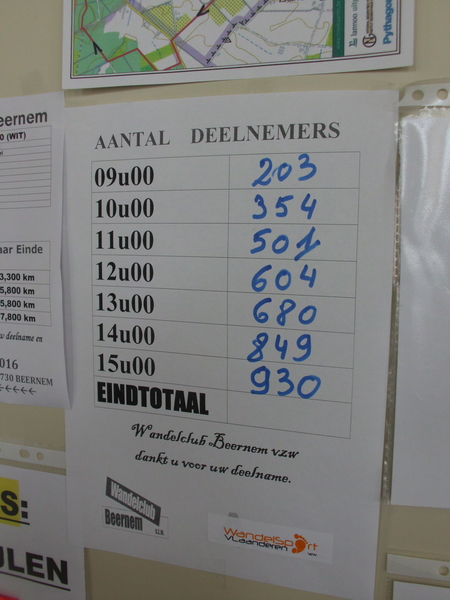 lannoo uitg
Pythagor
Beernem
0 (WIT)
aar Einde
3,300 km
5,800 km
5,800 km
7,800 km
w deelname en
016
730 BEERNEM
<<<<<
S:
ULEN
AANTAL DEELNEMERS
09u00 203
10u00 354
11u00 501
12u00 604
13u00 680
14u00 849
15u00 930
EINDTOTAAL
Wandelclub Beernem vzw
dankt u voor uw deelname.
Wandelclub
Beernem
WandelSport
Vlaanderen vzw